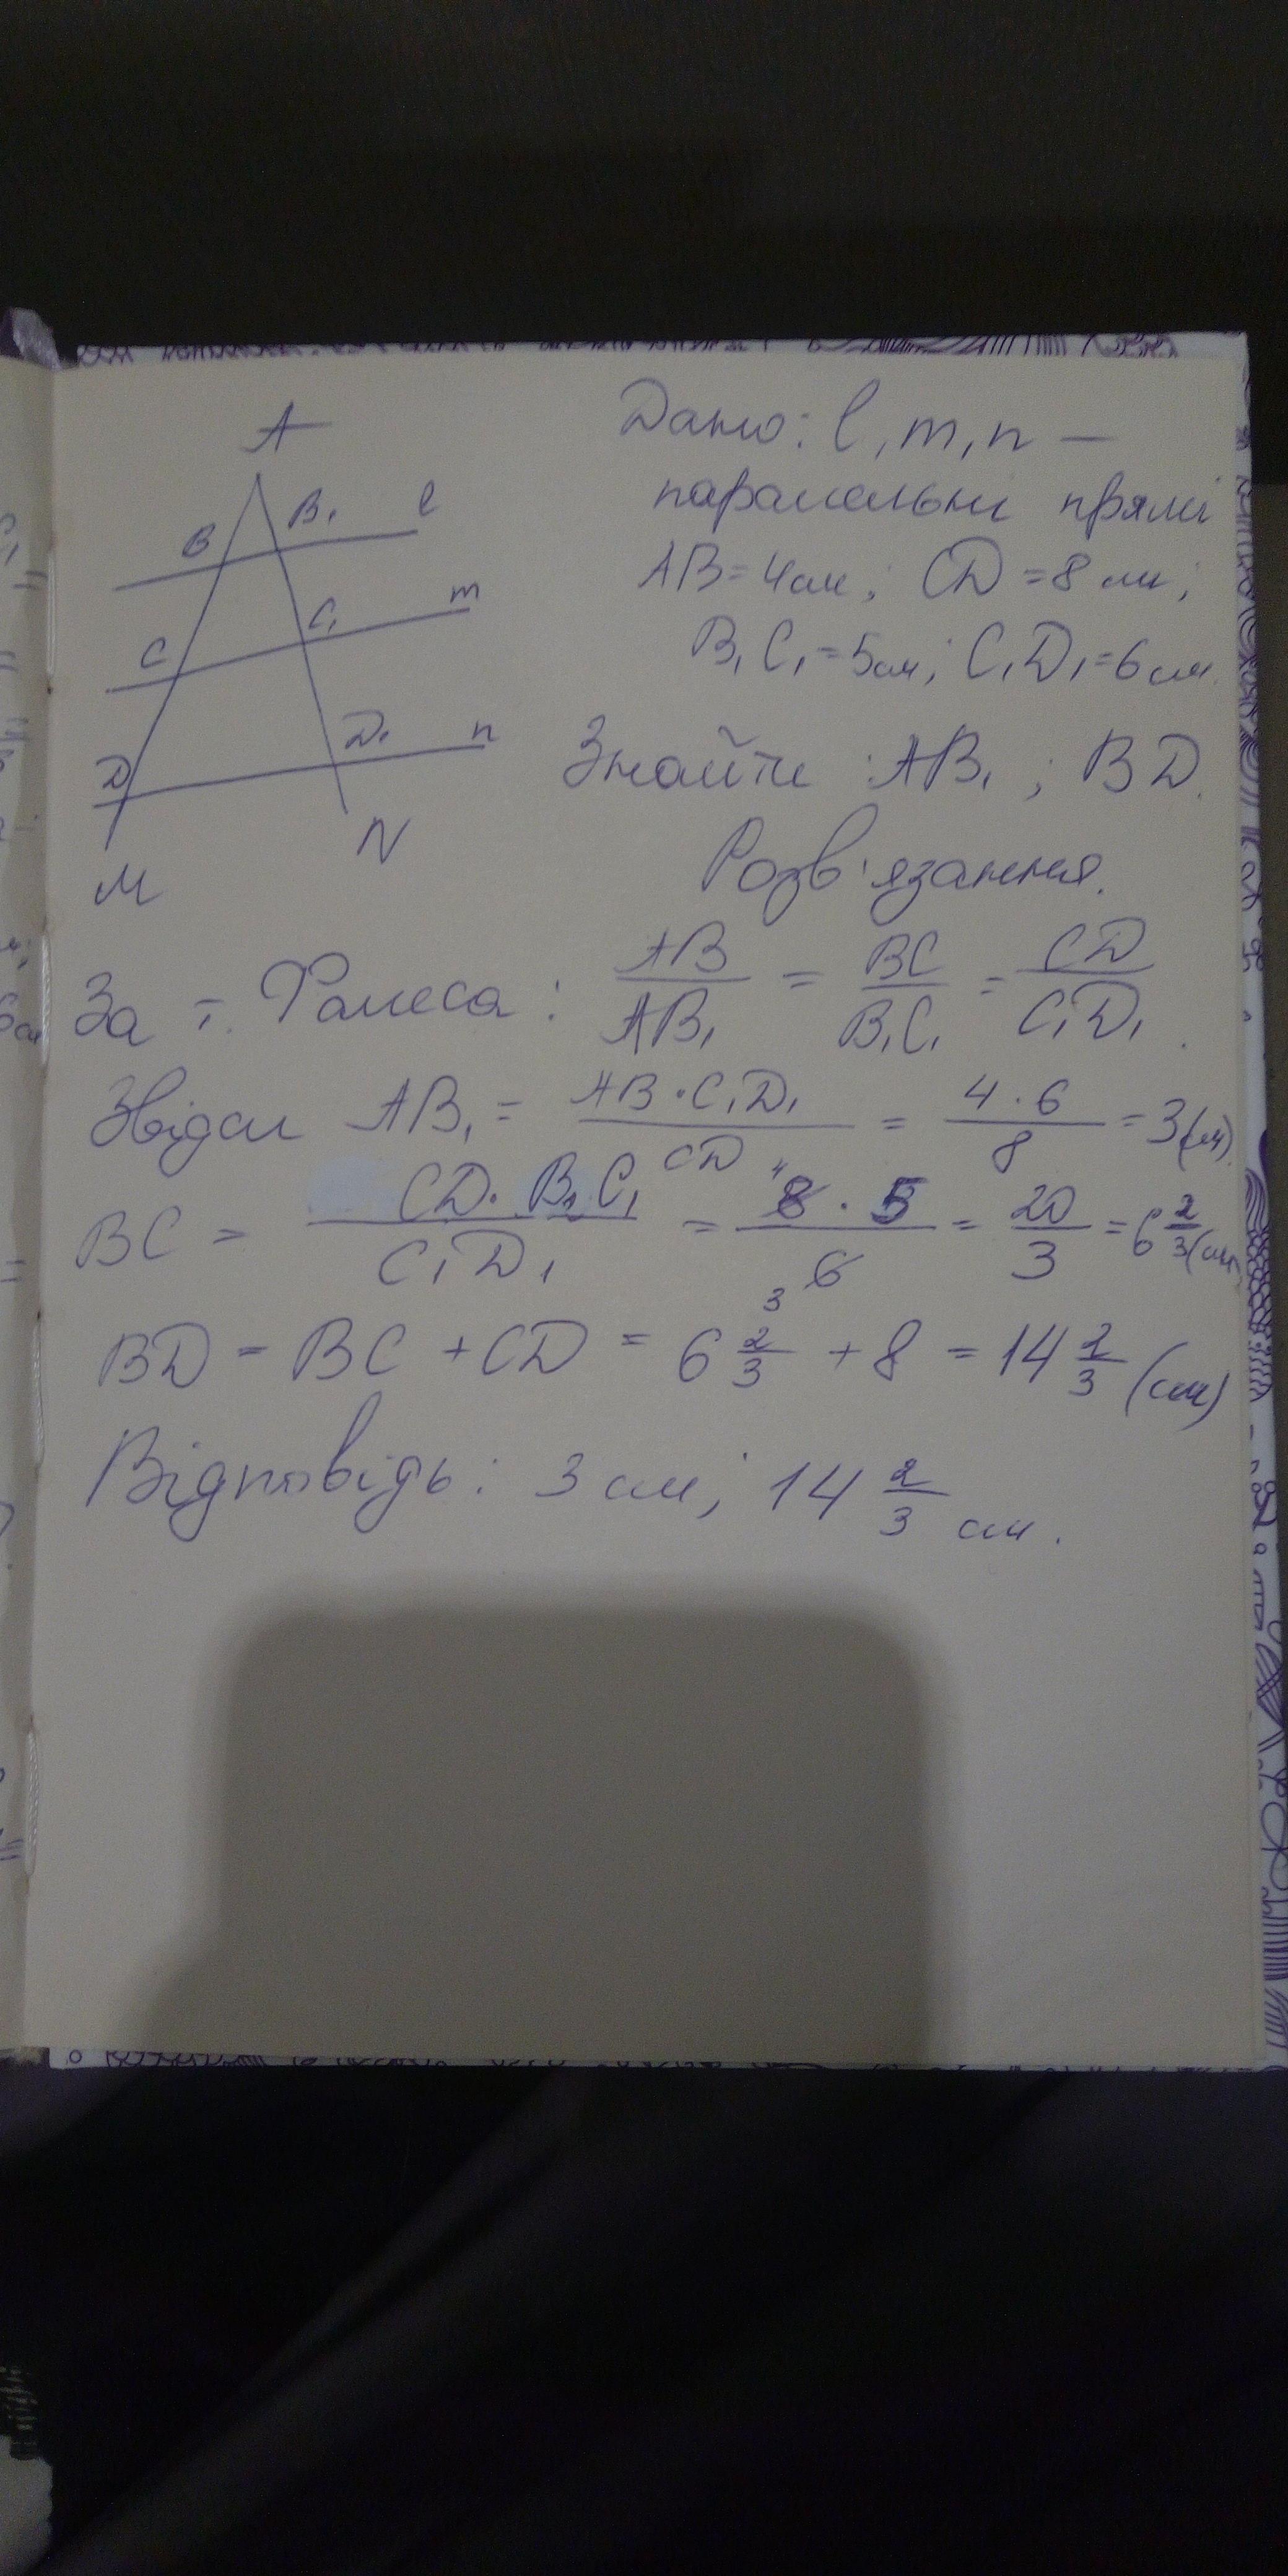 A
B B₁ l
C C₁ m
D D₁ n
M N
Дано: l, m, n –
паралельні прямі
AB = 4см; CD = 8 см;
B₁C₁ = 5см; C₁D₁ = 6 см.
Знайти: AB₁; BD.
Розв'язання.
За т. Фалеса: AB/AB₁ = BC/B₁C₁ = CD/C₁D₁.
Звідси AB₁ = AB·C₁D₁/CD = 4·6/8 = 3(см).
BC = CD·B₁C₁/C₁D₁ = 8⁴·5/6₃ = 20/3 = 6 2/3 (см)
BD = BC + CD = 6 2/3 + 8 = 14 2/3 (см)
Відповідь: 3 см; 14 2/3 см.